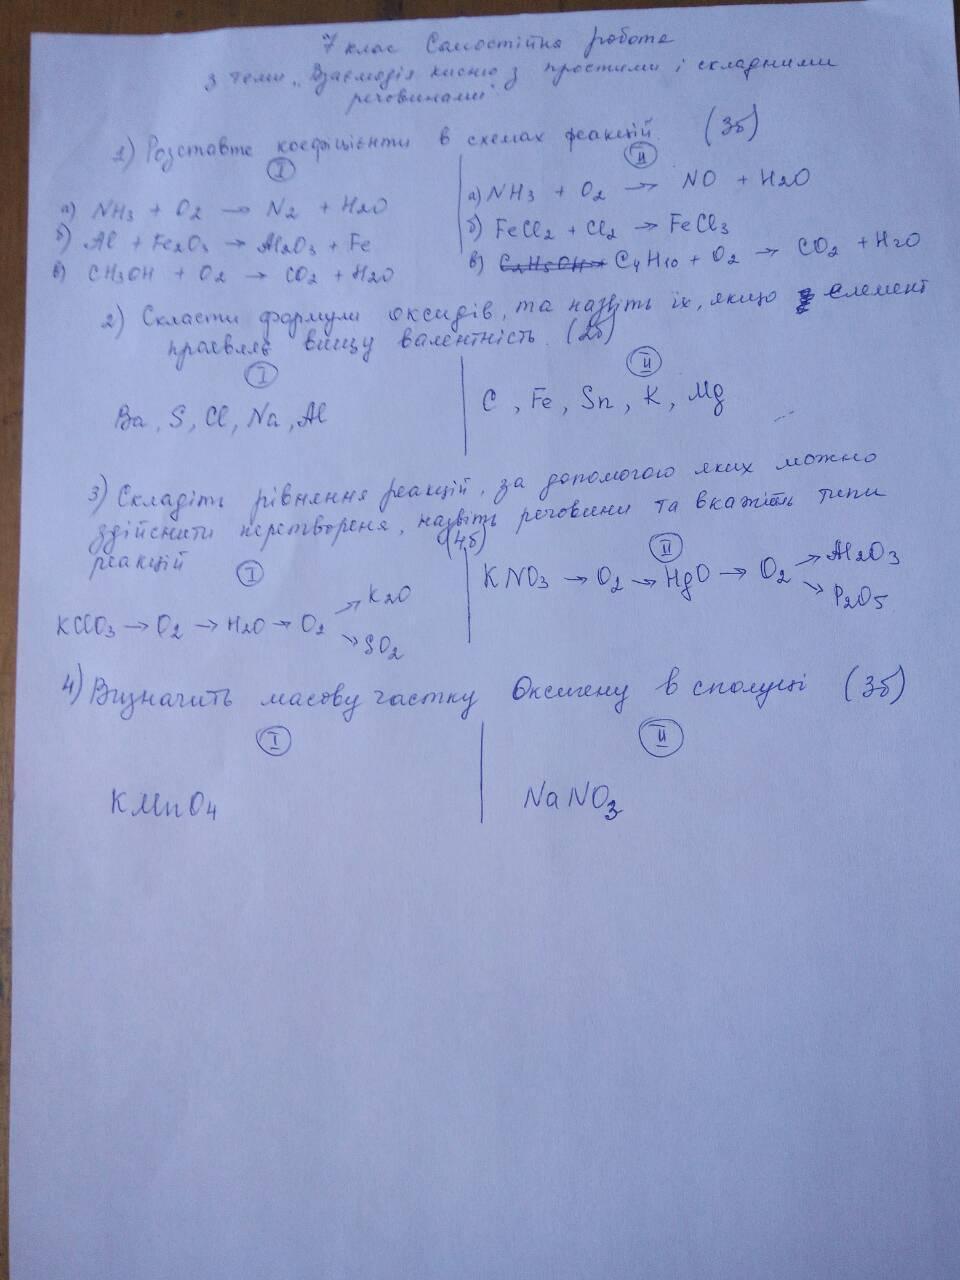 7 клас Самостійна робота
з теми „Взаємодія кисню з простими і складними
речовинами"
1) Розставте коефіцієнти в схемах реакцій. (3б)
I
II
а) NH3 + O2 → N2 + H2O
б) Al + Fe2O3 → Al2O3 + Fe
в) CH3OH + O2 → CO2 + H2O
а) NH3 + O2 → NO + H2O
б) FeCl2 + Cl2 → FeCl3
в) C2H5OH → C4H10 + O2 → CO2 + H2O
2) Скласти формули оксидів, та назвіть їх, якщо елемент
проявляє вищу валентність. (2б)
I
II
Ba, S, Cl, Na, Al
C, Fe, Sn, K, Mg
3) Складіть рівняння реакцій, за допомогою яких можно
здійснити перетвореня, назвіть речовини та вкажіть типи
реакцій (4б)
I
II
KClO3 → O2 → H2O → O2 → K2O
→ SO2
KNO3 → O2 → HgO → O2 → Al2O3
→ P2O5
4) Визначить масову частку Оксигену в сполуці (3б)
I
II
KMnO4
NaNO3